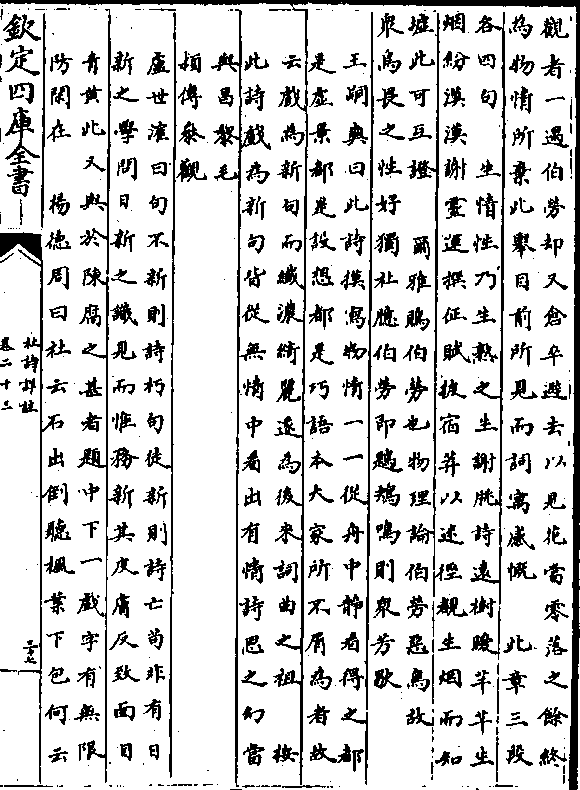 觀者一過伯勞却又倉卒避去以見花當零落之餘終
為物情所棄此舉目前所見而詞寓感慨　此章三段
各四句　生情性乃生熟之生謝朓詩遠樹曖芊芊生
烟紛漠漠謝靈運撰征賦披宿莽以迷徑覩生烟而知
墟此可互證　爾雅鵙伯勞也物理論伯勞惡鳥故
衆鳥畏之性好獨社臆伯勞即鶗鴂鳴則衆芳歇
王嗣奭曰此詩摸寫物情一一從舟中静看得之都
是虚景都是設想都是巧語本大家所不屑為者故
云戲為新句而纖濃綺麗遂為後來詞曲之祖　按
此詩戲為新句皆從無情中看出有情詩思之幻當
與昌黎毛
穎傳叅觀
盧世㴶曰句不新則詩朽句徒新則詩亡苟非有日
新之學問日新之識見而惟務新其皮膚反致面目
青黄此又與於陳腐之甚者題中下一戲字有無限
防閑在　楊德周曰杜云石出倒聽楓葉下包何云
欽定四庫全書
杜詩詳註
卷二十三